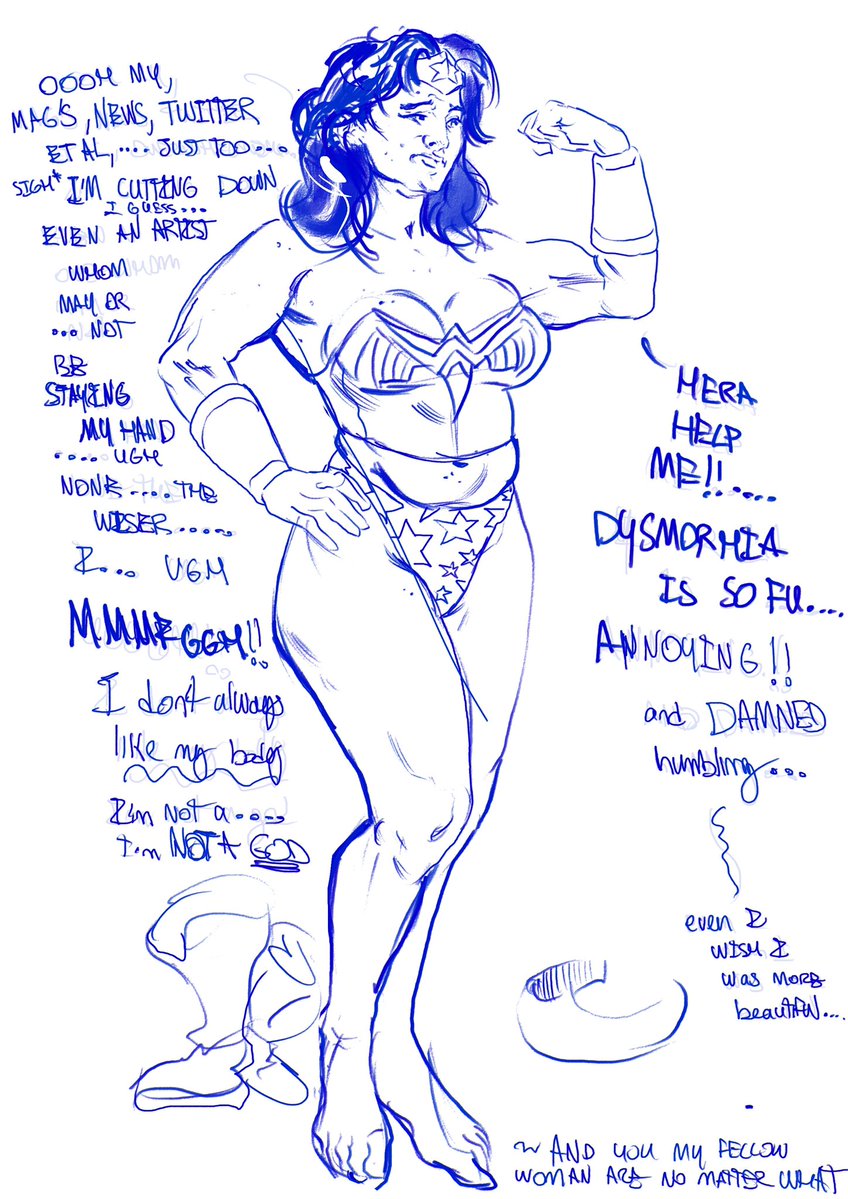 OOOH MY,
MAG'S, NEWS, TWITTER
ET AL, .... JUST TOO....
SIGH* I'M CUTTING DOWN
I GUESS...
EVEN AN ARTIST
WHOM
MAY OR
... NOT
BE
STAYING
MY HAND
.... UGH
NONE .... THE
WISER.....
I... UGH
MMMF GGH!!
I don't always
like my body
I'm not a....
I'm NOT A GOD
HERA
HELP
ME!!.....
DYSMORHIA
IS SO FU....
ANNOYING!!
and DAMNED
humbling...
even I
WISH I
was more
beautiful...
~ AND YOU MY FELLOW
WOMAN ARE NO MATTER WHAT